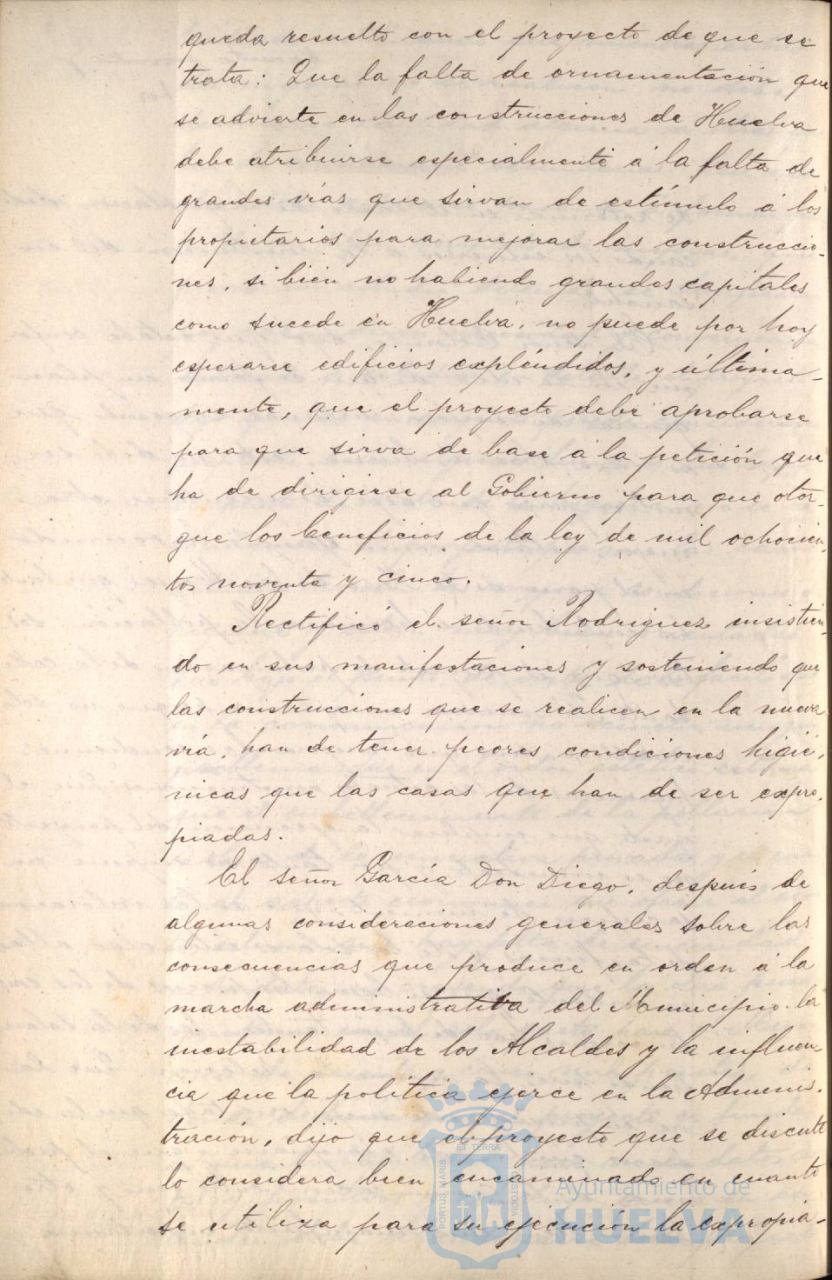 queda resuelto con el proyecto de que se
trata: Que la falta de ornamentación que
se advierte en las construcciones de Huelva
debe atribuirse especialmente á la falta de
grandes vías que sirvan de estímulo á los
propietarios para mejorar las construccio-
nes, si bien no habiendo grandes capitales
como sucede en Huelva, no puede por hoy
esperarse edificios expléndidos, y última-
mente, que el proyecto debe aprobarse
para que sirva de base á la petición que
ha de dirigirse al Gobierno para que otor-
gue los beneficios de la ley de mil ochocien-
tos noventa y cinco.
Rectificó el señor Rodriguez insistien-
do en sus manifestaciones y sosteniendo que
las construcciones que se realicen en la nueva
vía, han de tener peores condiciones higié-
nicas que las casas que han de ser expro-
piadas.
El señor García Don Diego, después de
algunas consideraciones generales sobre las
consecuencias que produce en orden á la
marcha administrativa del Municipio la
inestabilidad de los Alcaldes y la influen-
cia que la política ejerce en la Adminis-
tración, dijo que el proyecto que se discute
lo considera bien encaminado en cuanto
se utiliza para su ejecución la expropia-
PORTUS MARIS
ET TERRAE
CUSTODIA
Ayuntamiento de
HUELVA